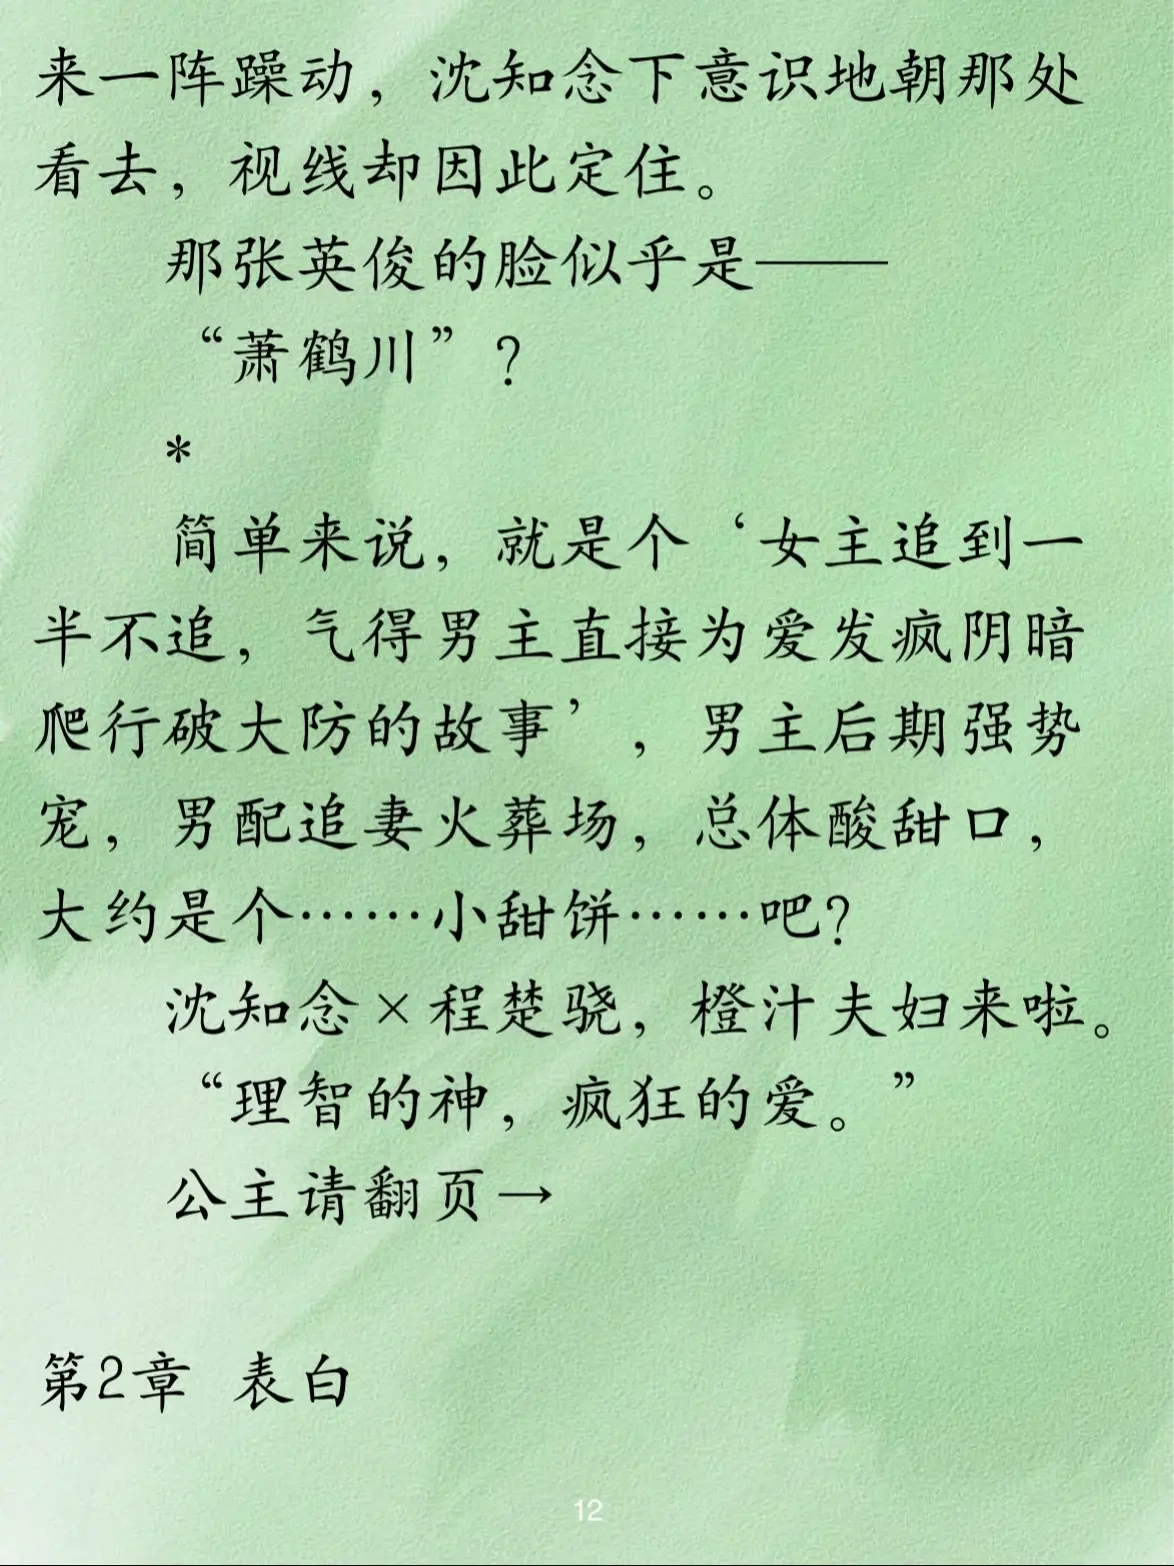 来一阵躁动，沈知念下意识地朝那处
看去，视线却因此定住。
那张英俊的脸似乎是——
“萧鹤川”？
*
简单来说，就是个‘女主追到一
半不追，气得男主直接为爱发疯阴暗
爬行破大防的故事’，男主后期强势
宠，男配追妻火葬场，总体酸甜口，
大约是个……小甜饼……吧？
沈知念×程楚骁，橙汁夫妇来啦。
“理智的神，疯狂的爱。”
公主请翻页→
第2章 表白
12